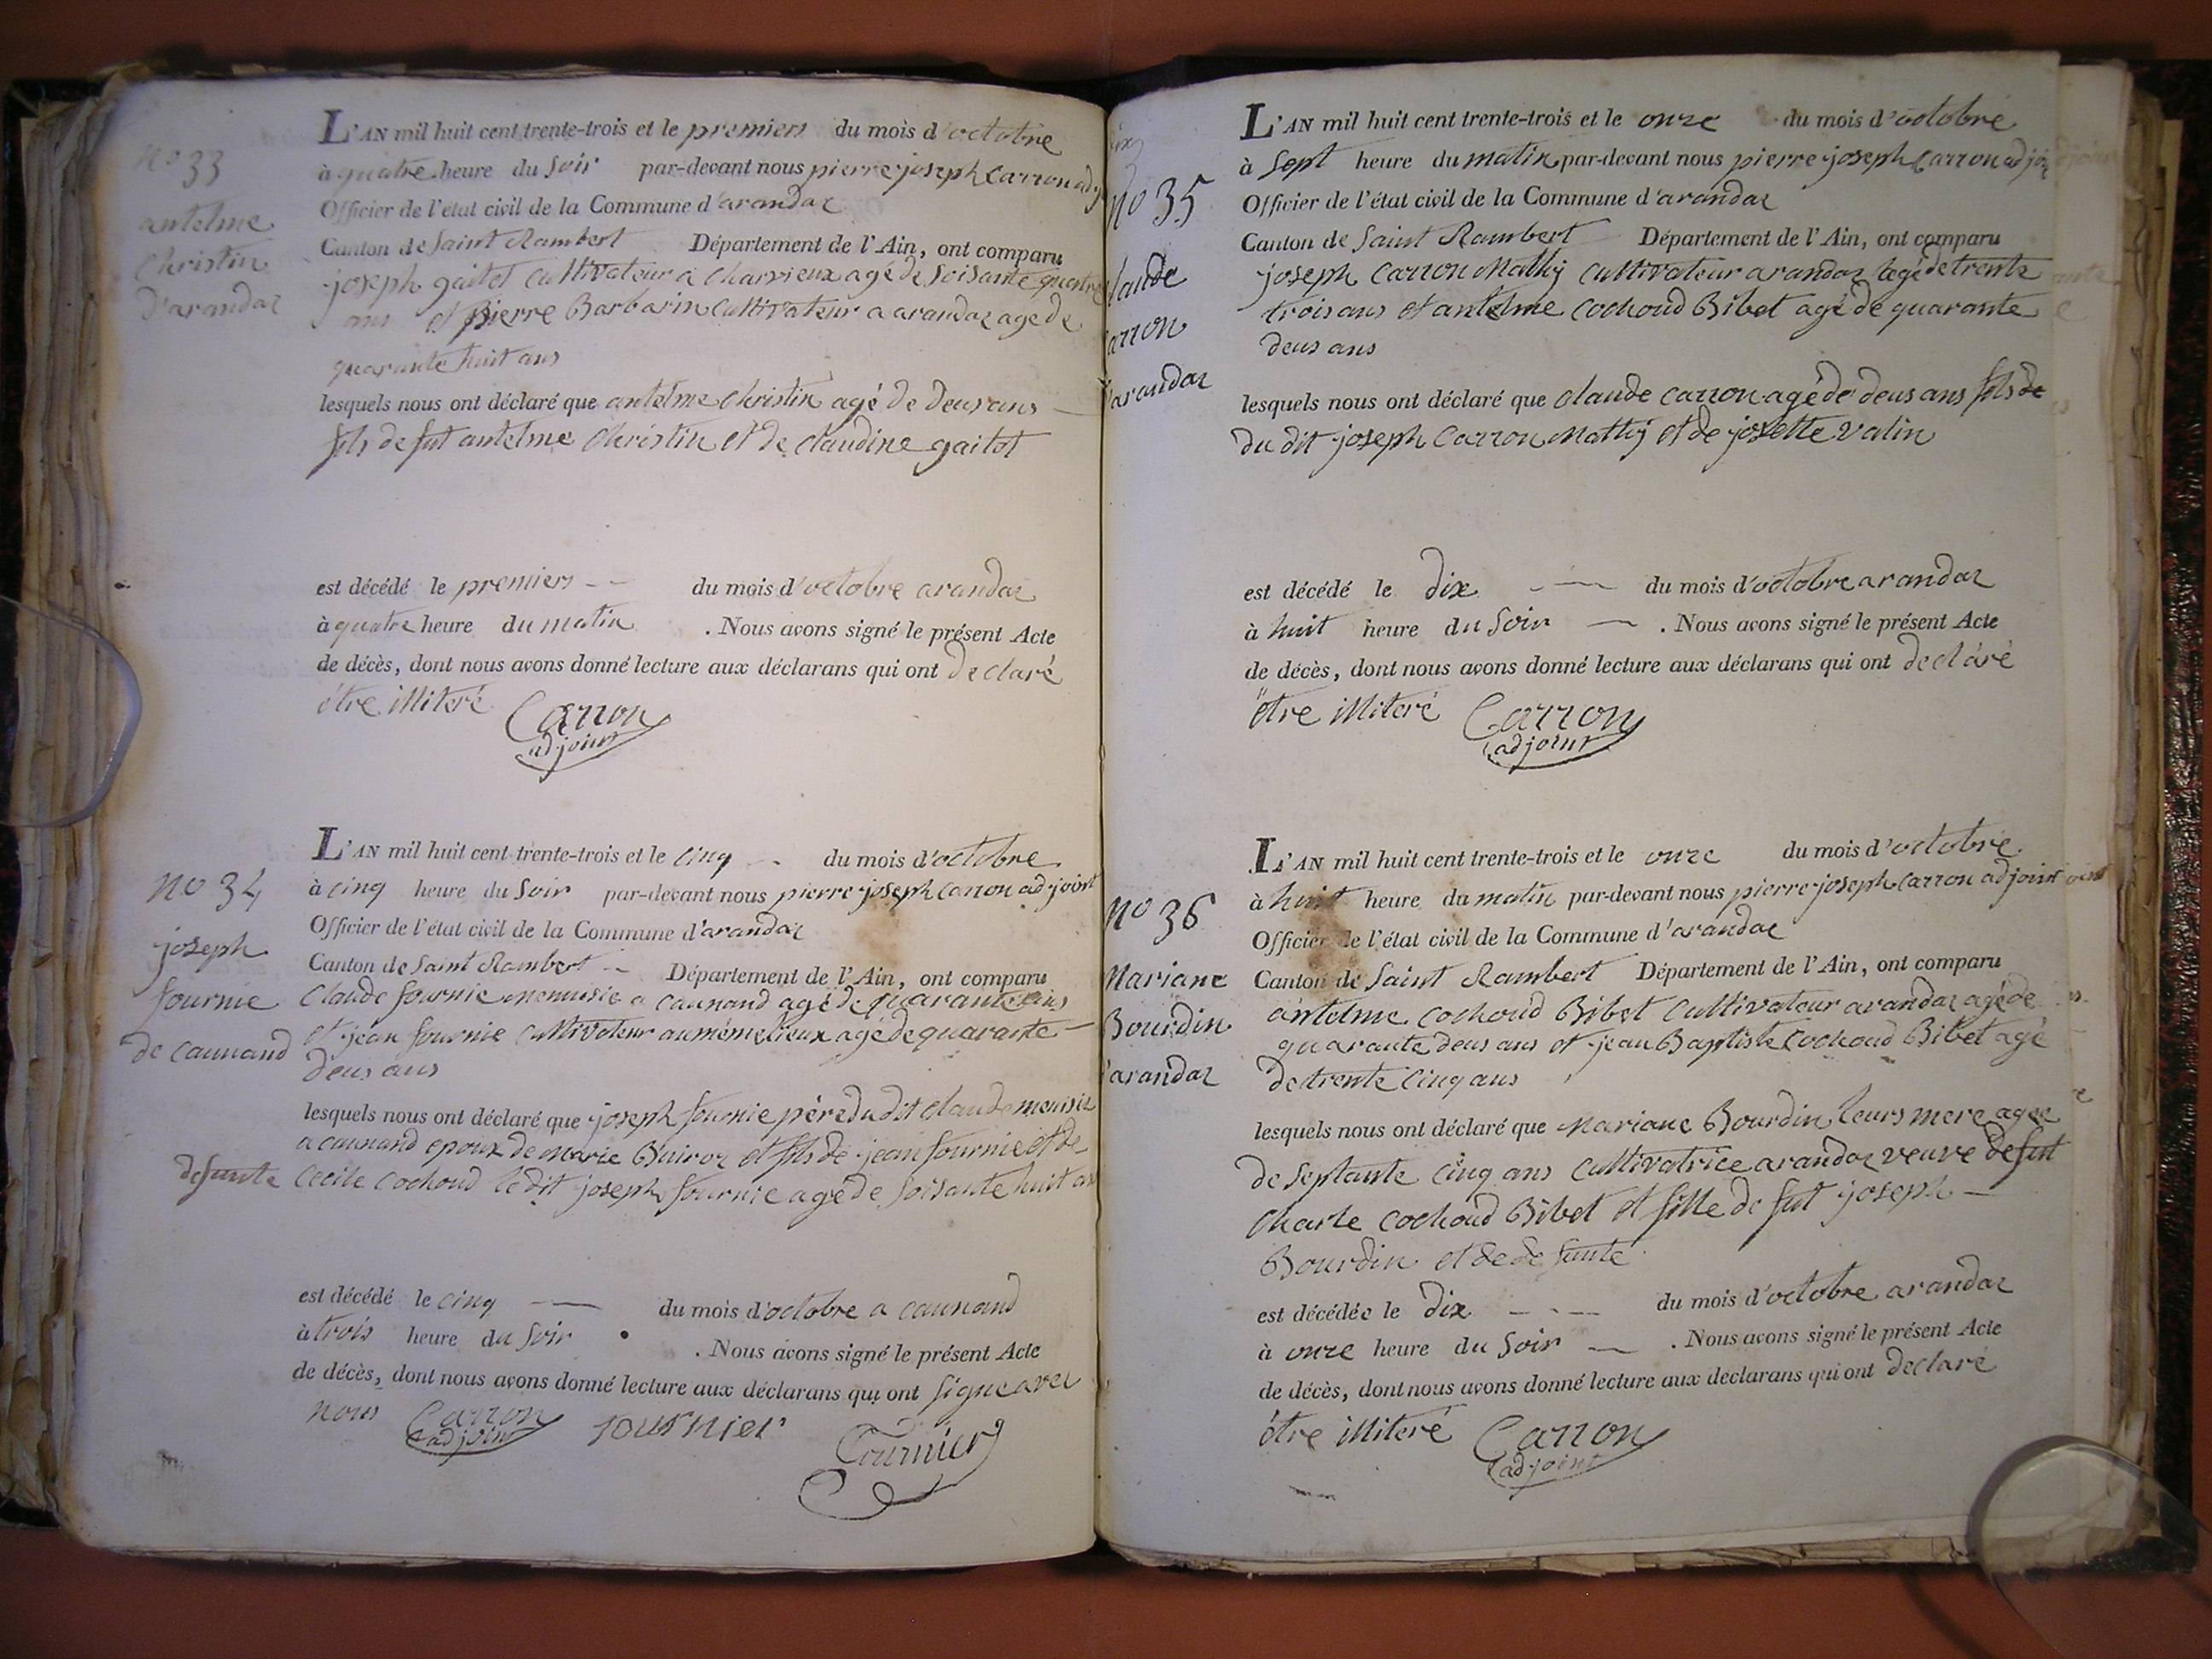 no 33
antelme
Christin
d'arandaz
L'AN mil huit cent trente-trois et le premiers du mois d'octobre
à quatre heure du soir par-devant nous pierre joseph Carron adj
Officier de l'état civil de la Commune d'arandaz
Canton de Saint Rambert Département de l'Ain, ont comparu
joseph gaitet cultivateur a charvieux agé de soisante quatre
ans et pierre Barbarin cultivateur a arandaz age de
quarante huit ans
lesquels nous ont déclaré que antelme Christin agé de deus ans
fils de fut antelme Christin et de claudine gaitet
est décédé le premiers du mois d'octobre arandaz
à quatre heure du matin . Nous avons signé le présent Acte
de décès, dont nous avons donné lecture aux déclarans qui ont declaré
être illiteré Carron
adjoint
no 34
joseph
fournie
de caunand
L'AN mil huit cent trente-trois et le cinq du mois d'octobre
à cinq heure du soir par-devant nous pierre joseph carron adjoint
Officier de l'état civil de la Commune d'arandaz
Canton de Saint Rambert Département de l'Ain, ont comparu
Claude fournie menuisie a caunand agé de quarante
et jean fournie cultivateur au même lieux agé de quarante
deus ans
lesquels nous ont déclaré que joseph fournie père du dit claude menisie
a caunand epoux de marie Buiroz et fils de jean fournie et de
defunte Cecile cochoud le dit joseph fournie age de soisante huit an
est décédé le cinq du mois d'octobre a caunand
à trois heure du soir . Nous avons signé le présent Acte
de décès, dont nous avons donné lecture aux déclarans qui ont signe avec
nous Carron fournier fournier
adjoint
no 35
claude
carron
d'arandaz
L'AN mil huit cent trente-trois et le onze du mois d'octobre
à sept heure du matin par-devant nous pierre joseph Carron adjoi
Officier de l'état civil de la Commune d'arandaz
Canton de Saint Rambert Département de l'Ain, ont comparu
joseph Carron Mathy cultivateur arandaz agé de trente
trois ans et antelme cochoud Bibet agé de quarante
deus ans
lesquels nous ont déclaré que claude carron agé de deus ans fils de
du dit joseph Carron Mathy et de josette valin
est décédé le dix du mois d'octobre arandaz
à huit heure du soir . Nous avons signé le présent Acte
de décès, dont nous avons donné lecture aux déclarans qui ont declaré
être illiteré Carron
adjoint
no 36
Mariane
Bourdin
d'arandaz
L'AN mil huit cent trente-trois et le onze du mois d'octobre
à huit heure du matin par-devant nous pierre joseph carron adjoint
Officier de l'état civil de la Commune d'arandaz
Canton de Saint Rambert Département de l'Ain, ont comparu
antelme cochoud Bibet cultivateur arandaz agé de
quarante deus ans et jean Baptiste cochoud Bibet agé
de trente cinq ans
lesquels nous ont déclaré que Mariane Bourdin leurs mere agee
de septante cinq ans cultivatrice arandaz veuve de fut
charle cochoud Bibet et fille de fut joseph
Bourdin et de defunte
est décédée le dix du mois d'octobre arandaz
à onze heure du soir . Nous avons signé le présent Acte
de décès, dont nous avons donné lecture aux déclarans qui ont declaré
être illiteré Carron
adjoint